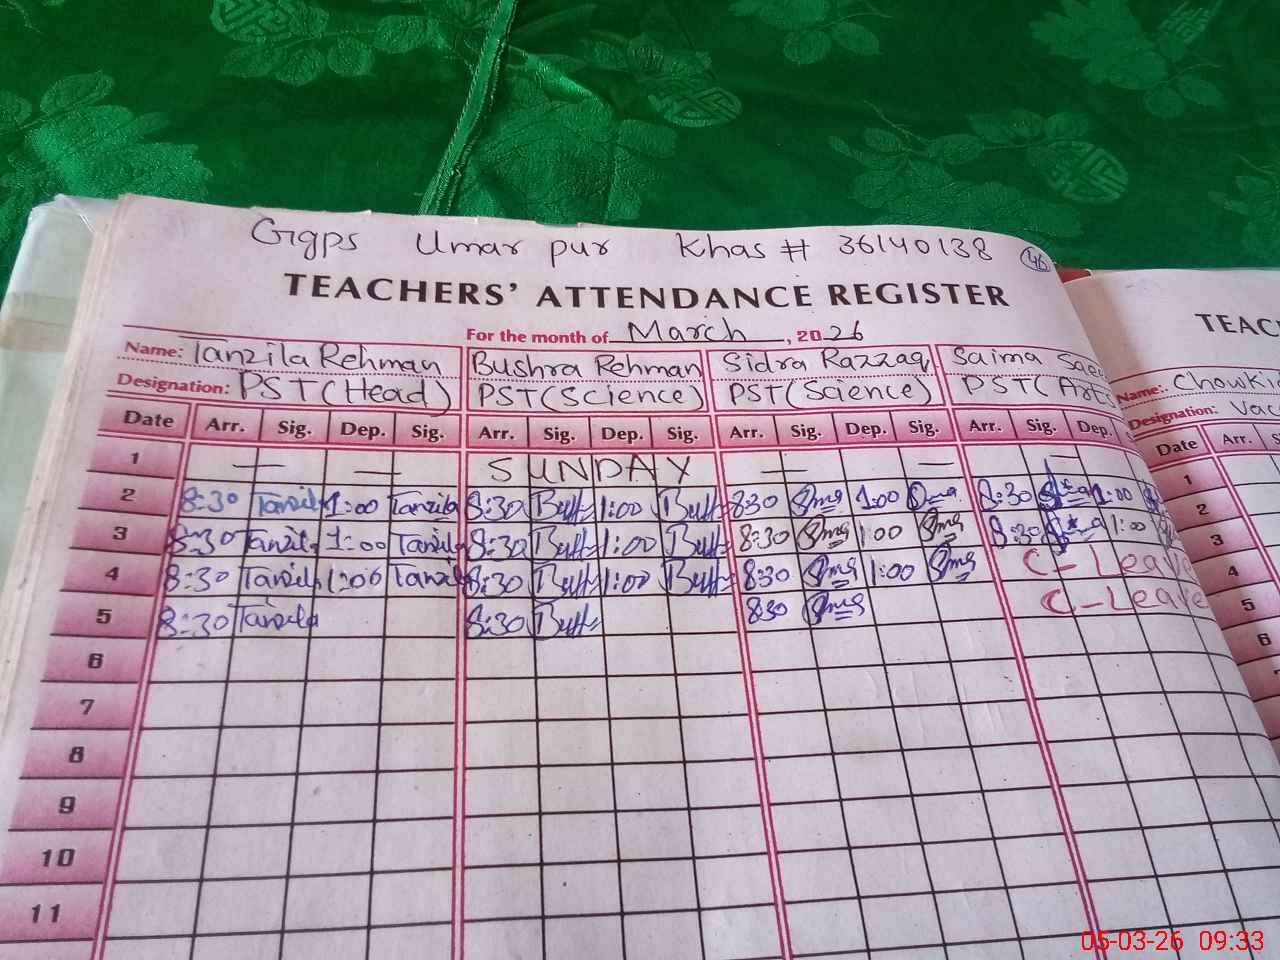 Ggps Umar pur Khas # 36140138 46
TEACHERS' ATTENDANCE REGISTER
For the month of March, 2026
Name: Tanzila Rehman Bushra Rehman Sidra Razzaq Saima
Designation: PST (Head) PST (Science) PST (Science) PST (Arts
Date Arr. Sig. Dep. Sig. Arr. Sig. Dep. Sig. Arr. Sig. Dep. Sig. Arr. Sig. Dep.
1 — — SUNDAY — — —
2 8:30 Tanzila 1:00 Tanzila 8:30 1:00 8:30 1:00 8:30 1:00
3 8:30 Tanzila 1:00 Tanzila 8:30 1:00 8:30 1:00 8:30 1:00
4 8:30 Tanzila 1:00 Tanzila 8:30 1:00 8:30 1:00 C-Leave
5 8:30 Tanzila 8:30 8:30 C-Leave
6
7
8
9
10
11
TEAC
Name: Chowki
Designation: Vac
Date Arr. S
1
2
3
4
5
6
05-03-26 09:33